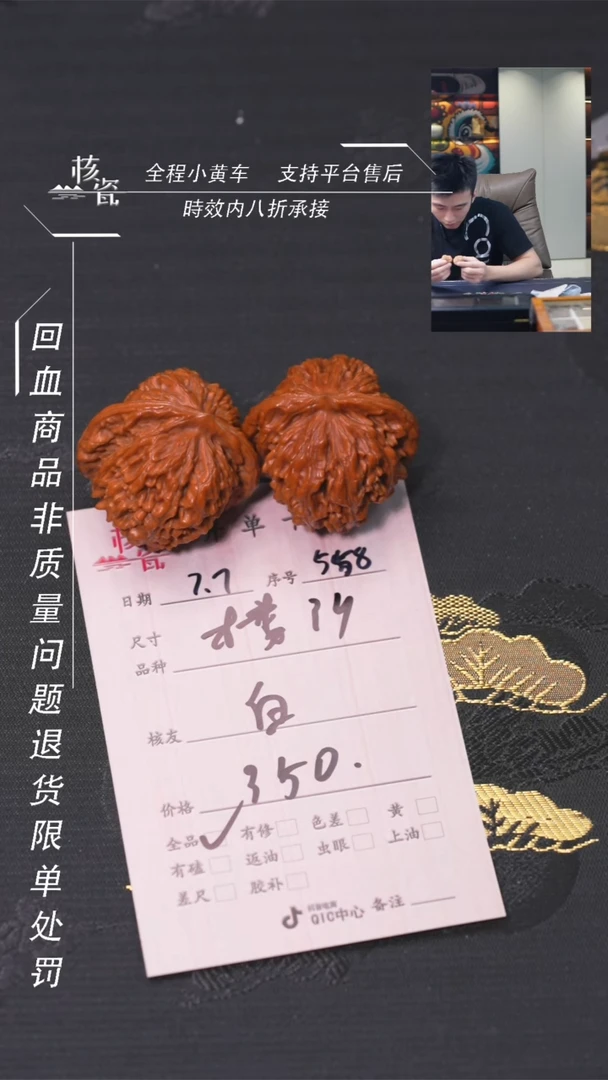 核瓷
全程小黄车 支持平台售后
時效内八折承接
回血商品非质量问题退货限单处罚
核瓷 单
日期 7.7 序号 558
尺寸
品种
楼 14
核友 白
价格 350.
全品 有修 色差 黄
有磕 返油 虫眼 上油
差尺 胶补
QIC中心 备注